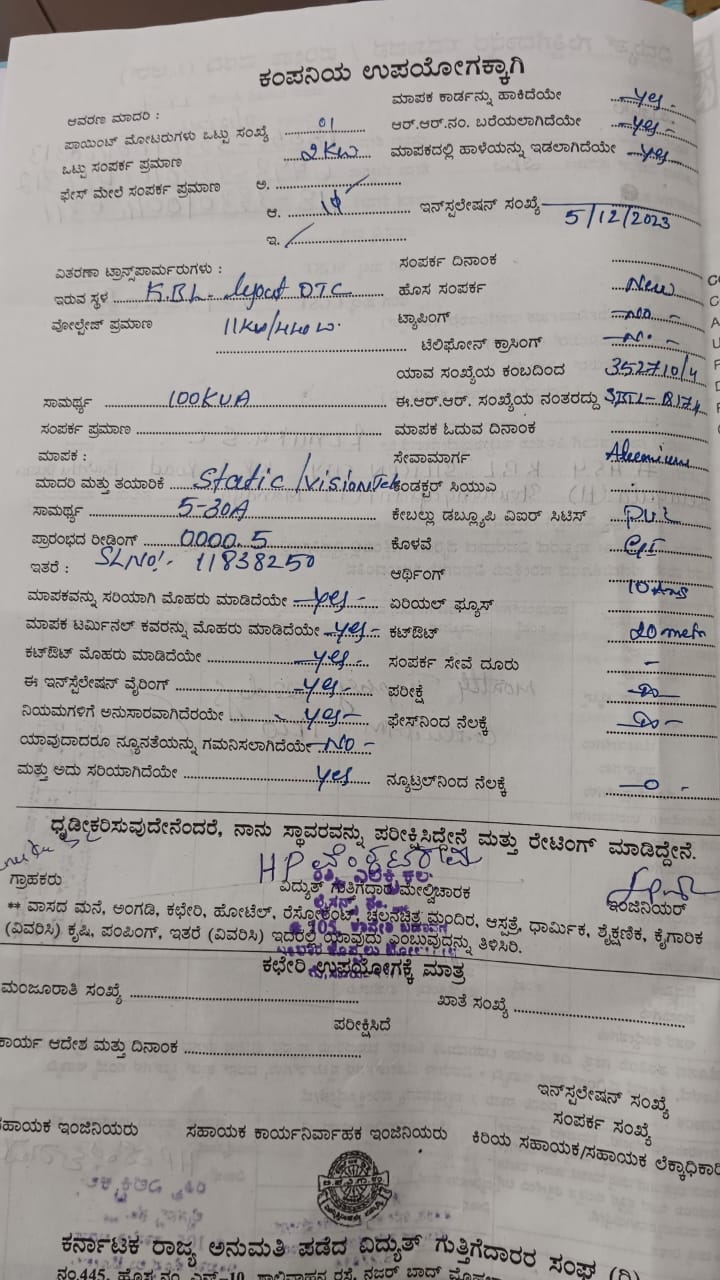 ಕಂಪನಿಯ ಉಪಯೋಗಕ್ಕಾಗಿ
ಆವರಣ ಮಾದರಿ : ಮಾಪಕ ಕಾರ್ಡನ್ನು ಹಾಕಿದೆಯೇ yes -
ಪಾಯಿಂಟ್ ಮೋಟರುಗಳು ಒಟ್ಟು ಸಂಖ್ಯೆ 01 ಆರ್.ಆರ್.ನಂ. ಬರೆಯಲಾಗಿದೆಯೇ -yes-
ಒಟ್ಟು ಸಂಪರ್ಕ ಪ್ರಮಾಣ 2 KW ಮಾಪಕದಲ್ಲಿ ಹಾಳೆಯನ್ನು ಇಡಲಾಗಿದೆಯೇ -yes
ಫೇಸ್ ಮೇಲೆ ಸಂಪರ್ಕ ಪ್ರಮಾಣ ಅ.
ಆ. 1ϕ ಇನ್‌ಸ್ಟಲೇಷನ್ ಸಂಖ್ಯೆ 5/12/2023
ಇ.
ವಿತರಣಾ ಟ್ರಾನ್ಸ್‌ಪಾರ್ಮರುಗಳು : ಸಂಪರ್ಕ ದಿನಾಂಕ
ಇರುವ ಸ್ಥಳ K.B.L- depot DTC ಹೊಸ ಸಂಪರ್ಕ New
ವೋಲ್ಟೇಜ್ ಪ್ರಮಾಣ ಟ್ಯಾಪಿಂಗ್ -no-
ಟೆಲಿಫೋನ್ ಕ್ರಾಸಿಂಗ್
ಯಾವ ಸಂಖ್ಯೆಯ ಕಂಬದಿಂದ 352710/4
ಸಾಮರ್ಥ್ಯ 100KVA ಈ.ಆರ್.ಆರ್. ಸಂಖ್ಯೆಯ ನಂತರದ್ದು
ಸಂಪರ್ಕ ಪ್ರಮಾಣ ಮಾಪಕ ಓದುವ ದಿನಾಂಕ
ಮಾಪಕ : ಸೇವಾಮಾರ್ಗ
ಮಾದರಿ ಮತ್ತು ತಯಾರಿಕೆ Static /visionTek ಕಂಡಕ್ಟರ್ ಸಿಯುವಿ
ಸಾಮರ್ಥ್ಯ 5-30A ಕೇಬಲ್ಲು ಡಬ್ಲ್ಯೂಪಿ ವಿಐಆರ್ ಸಿಟಿಸ್
ಪ್ರಾರಂಭದ ರೀಡಿಂಗ್ 0000.5 ಕೊಳವೆ GI
ಇತರೆ : SLNO:- 11838250 ಆರ್ಥಿಂಗ್
ಮಾಪಕವನ್ನು ಸರಿಯಾಗಿ ಮೊಹರು ಮಾಡಿದೆಯೇ -yes- ಏರಿಯಲ್ ಫ್ಯೂಸ್
ಮಾಪಕ ಟರ್ಮಿನಲ್ ಕವರನ್ನು ಮೊಹರು ಮಾಡಿದೆಯೇ -yes- ಕಟ್‌ಔಟ್
ಕಟ್‌ಔಟ್ ಮೊಹರು ಮಾಡಿದೆಯೇ -yes- ಸಂಪರ್ಕ ಸೇವೆ ದೂರು -
ಈ ಇನ್‌ಸ್ಟಲೇಷನ್ ವೈರಿಂಗ್ -yes- ಪರೀಕ್ಷೆ
ನಿಯಮಗಳಿಗೆ ಅನುಸಾರವಾಗಿದೆರಯೇ -yes- ಫೇಸ್‌ನಿಂದ ನೆಲಕ್ಕೆ
ಯಾವುದಾದರೂ ನ್ಯೂನತೆಯನ್ನು ಗಮನಿಸಲಾಗಿದೆಯೇ -NO-
ಮತ್ತು ಅದು ಸರಿಯಾಗಿದೆಯೇ yes ನ್ಯೂಟ್ರಲ್‌ನಿಂದ ನೆಲಕ್ಕೆ -0-
ಧೃಡೀಕರಿಸುವುದೇನೆಂದರೆ, ನಾನು ಸ್ಥಾವರವನ್ನು ಪರೀಕ್ಷಿಸಿದ್ದೇನೆ ಮತ್ತು ರೇಟಿಂಗ್ ಮಾಡಿದ್ದೇನೆ.
ಗ್ರಾಹಕರು ವಿದ್ಯುತ್ ಗುತ್ತಿಗೆದಾರ/ಮೇಲ್ವಿಚಾರಕ ಇಂಜಿನಿಯರ್
** ವಾಸದ ಮನೆ, ಅಂಗಡಿ, ಕಛೇರಿ, ಹೋಟೆಲ್, ರೆಸ್ಟೋರೆಂಟ್, ಚಲನಚಿತ್ರ ಮಂದಿರ, ಆಸ್ಪತ್ರೆ, ಧಾರ್ಮಿಕ, ಶೈಕ್ಷಣಿಕ, ಕೈಗಾರಿಕ
(ವಿವರಿಸಿ) ಕೃಷಿ, ಪಂಪಿಂಗ್, ಇತರೆ (ವಿವರಿಸಿ) ಇದರಲ್ಲಿ ಯಾವುದು ಎಂಬುವುದನ್ನು ತಿಳಿಸಿರಿ.
ಕಛೇರಿ ಉಪಯೋಗಕ್ಕೆ ಮಾತ್ರ
ಮಂಜೂರಾತಿ ಸಂಖ್ಯೆ ಖಾತೆ ಸಂಖ್ಯೆ
ಪರೀಕ್ಷಿಸಿದೆ
ಕಾರ್ಯ ಆದೇಶ ಮತ್ತು ದಿನಾಂಕ
ಇನ್‌ಸ್ಟಲೇಷನ್ ಸಂಖ್ಯೆ
ಸಂಪರ್ಕ ಸಂಖ್ಯೆ
ಸಹಾಯಕ ಇಂಜಿನಿಯರು ಸಹಾಯಕ ಕಾರ್ಯನಿರ್ವಾಹಕ ಇಂಜಿನಿಯರು ಕಿರಿಯ ಸಹಾಯಕ/ಸಹಾಯಕ ಲೆಕ್ಕಾಧಿಕಾರಿ
ಕರ್ನಾಟಕ ರಾಜ್ಯ ಅನುಮತಿ ಪಡೆದ ವಿದ್ಯುತ್ ಗುತ್ತಿಗೆದಾರರ ಸಂಘ (ರಿ)